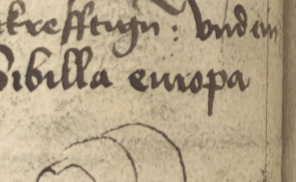 krefftign : vnd ein
Sibilla europa